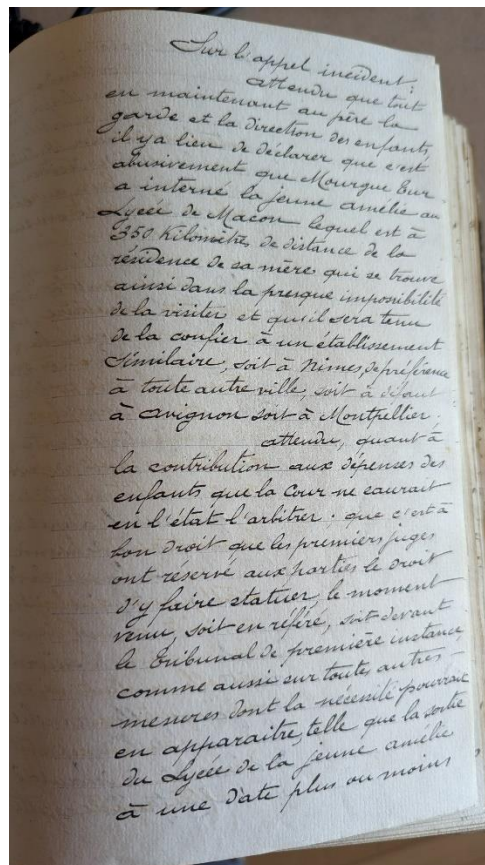 Sur l'appel incident:
attendu que tout
en maintenant au père la
garde et la direction des enfants,
il y a lieu de déclarer que c'est
abusivement que Mourgue Eur
a interné la jeune amélie au
Lycée de Macon lequel est à
350 Kilomètres de distance de la
résidence de sa mère qui se trouve
ainsi dans la presque impossibilité
de la visiter et qu'il sera tenu
de la confier à un établissement
similaire, soit à Nimes, de préférence
à toute autre ville, soit à défaut
à avignon soit à Montpellier.
attendu, quant à
la contribution aux dépenses des
enfants que la Cour ne saurait
en l'état l'arbitrer; que c'est à
bon droit que les premiers juges
ont réservé aux parties le droit
d'y faire statuer, le moment
venu, soit en référé, soit devant
le Tribunal de première instance
comme aussi sur toutes autres
mesures dont la nécessité pourrait
en apparaitre, telle que la sortie
du Lycée de la jeune amélie
à une date plus ou moins